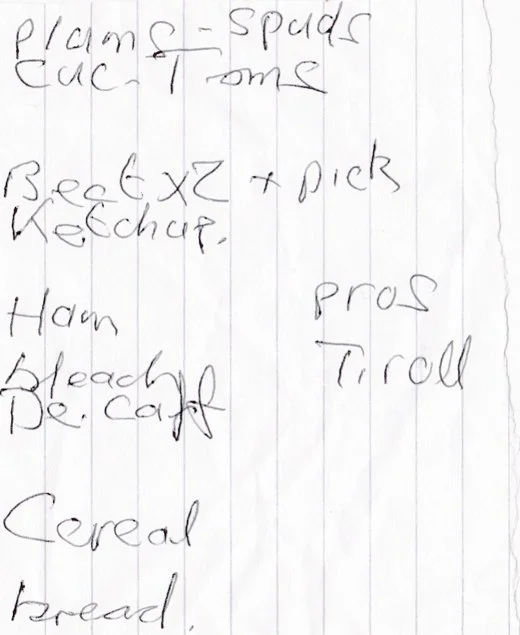 plams - spuds
Cuc - Toms
Beet x2 + pick
Ketchup.
Ham
pros
bleach
T. roll
De. Caff
Cereal
bread.